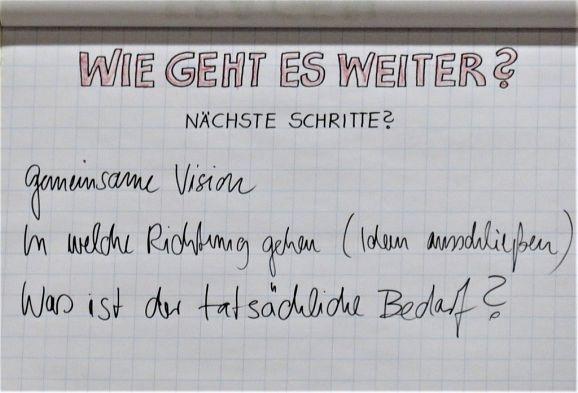 WIE GEHT ES WEITER?
NÄCHSTE SCHRITTE?
gemeinsame Vision
In welche Richtung gehen (Ideen ausschließen)
Was ist der tatsächliche Bedarf?